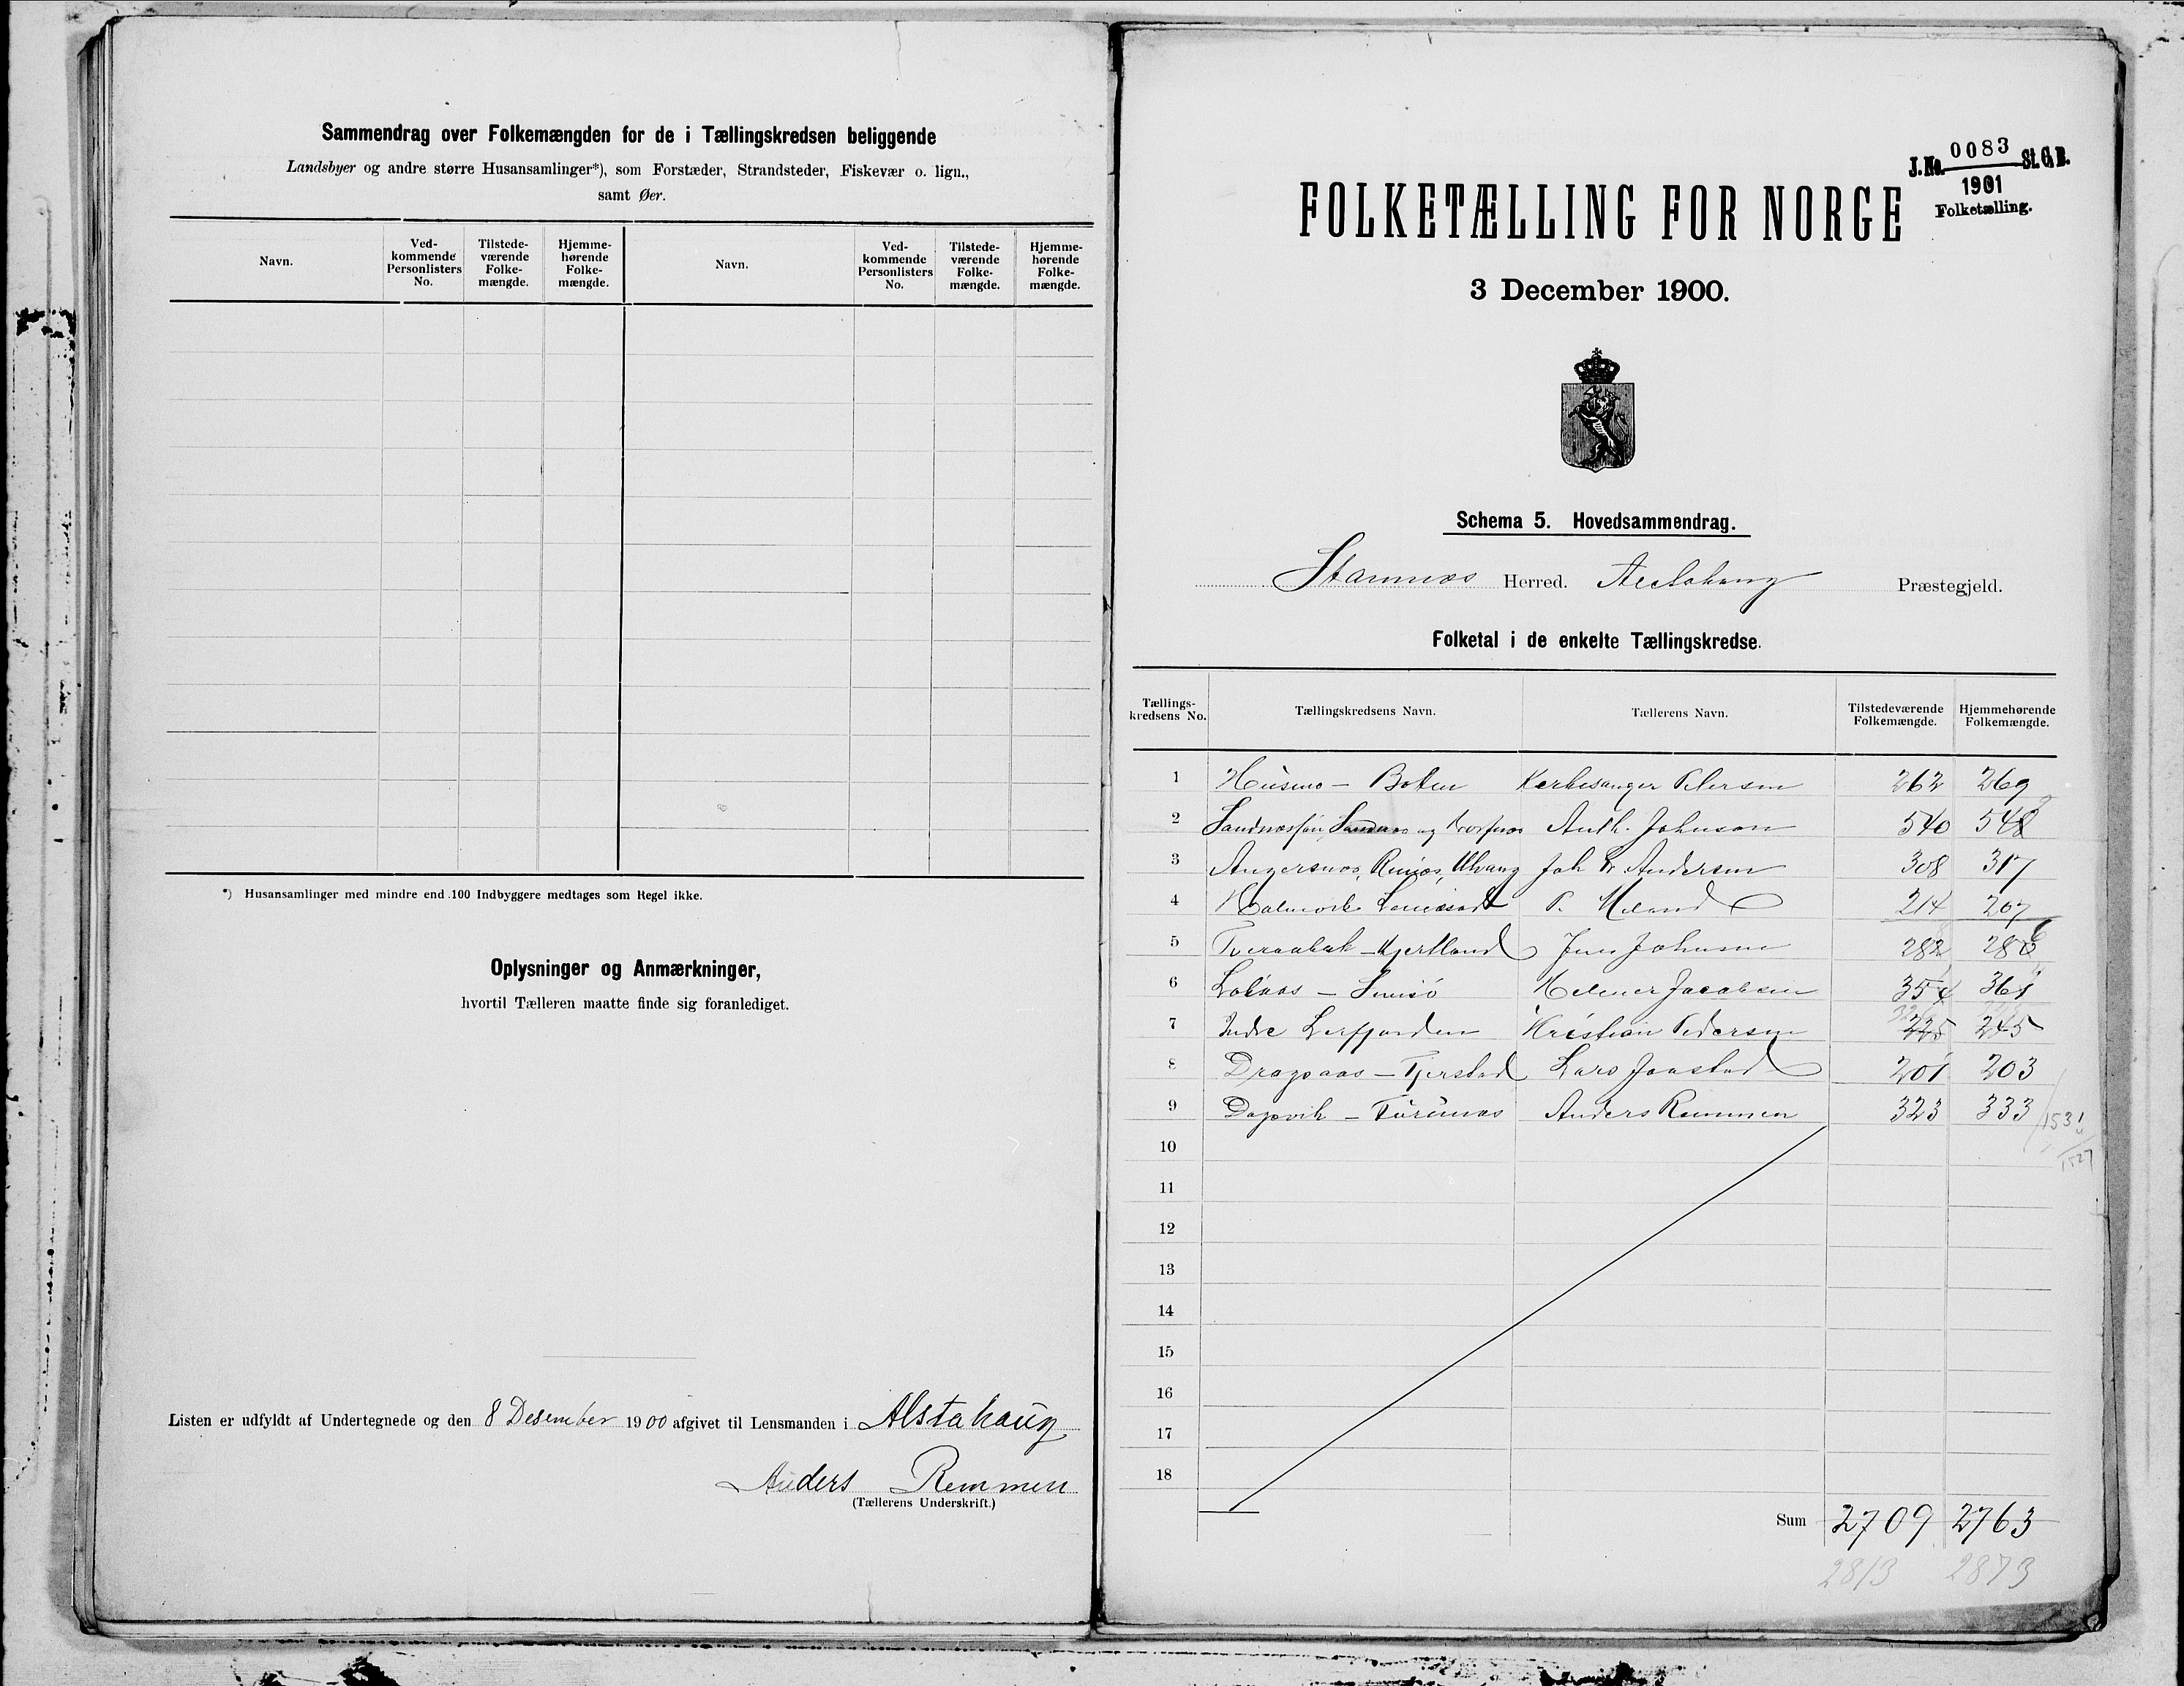 Sammendrag over Folkemængden for de i Tællingskredsen beliggende
Landsbyer og andre større Husansamlinger*), som Forstæder, Strandsteder, Fiskevær o. lign.,
samt Øer.
Navn. Ved-kommende Personlisters No. Tilstede-værende Folke-mængde. Hjemme-hørende Folke-mængde. Navn. Ved-kommende Personlisters No. Tilstede-værende Folke-mængde. Hjemme-hørende Folke-mængde.
*) Husansamlinger med mindre end 100 Indbyggere medtages som Regel ikke.
Oplysninger og Anmærkninger,
hvortil Tælleren maatte finde sig foranlediget.
Listen er udfyldt af Undertegnede og den 8 Desember 1900 afgivet til Lensmanden i Alstahaug
Anders Remmen
(Tællerens Underskrift.)
J.No. 0083 St.C.B.
1901
Folketælling.
FOLKETÆLLING FOR NORGE
3 December 1900.
Schema 5. Hovedsammendrag.
Stamnæs Herred. Alstahoug Præstegjeld.
Folketal i de enkelte Tællingskredse.
Tællings-kredsens No. Tællingskredsens Navn. Tællerens Navn. Tilstedeværende Folkemængde. Hjemmehørende Folkemængde.
1 Husmo - Botten Kirkesanger Petersen 262 269
2 Sandnæssjøen Sandnæs og Anth. Johnson 540 548
3 Angersnæs, Ulvang Joh Andersen 308 317
4 P. 214 207
5 - Johnsen 282 286
6 - Jacobsen 354 361
7 Indre Leirfjorden Kristian Pedersen 225 245
8 Dragsaas - Lars 201 203
9 Dagsvik - Anders Remmen 323 333
1531
1527
10
11
12
13
14
15
16
17
18
Sum 2709 2763
2813 2873